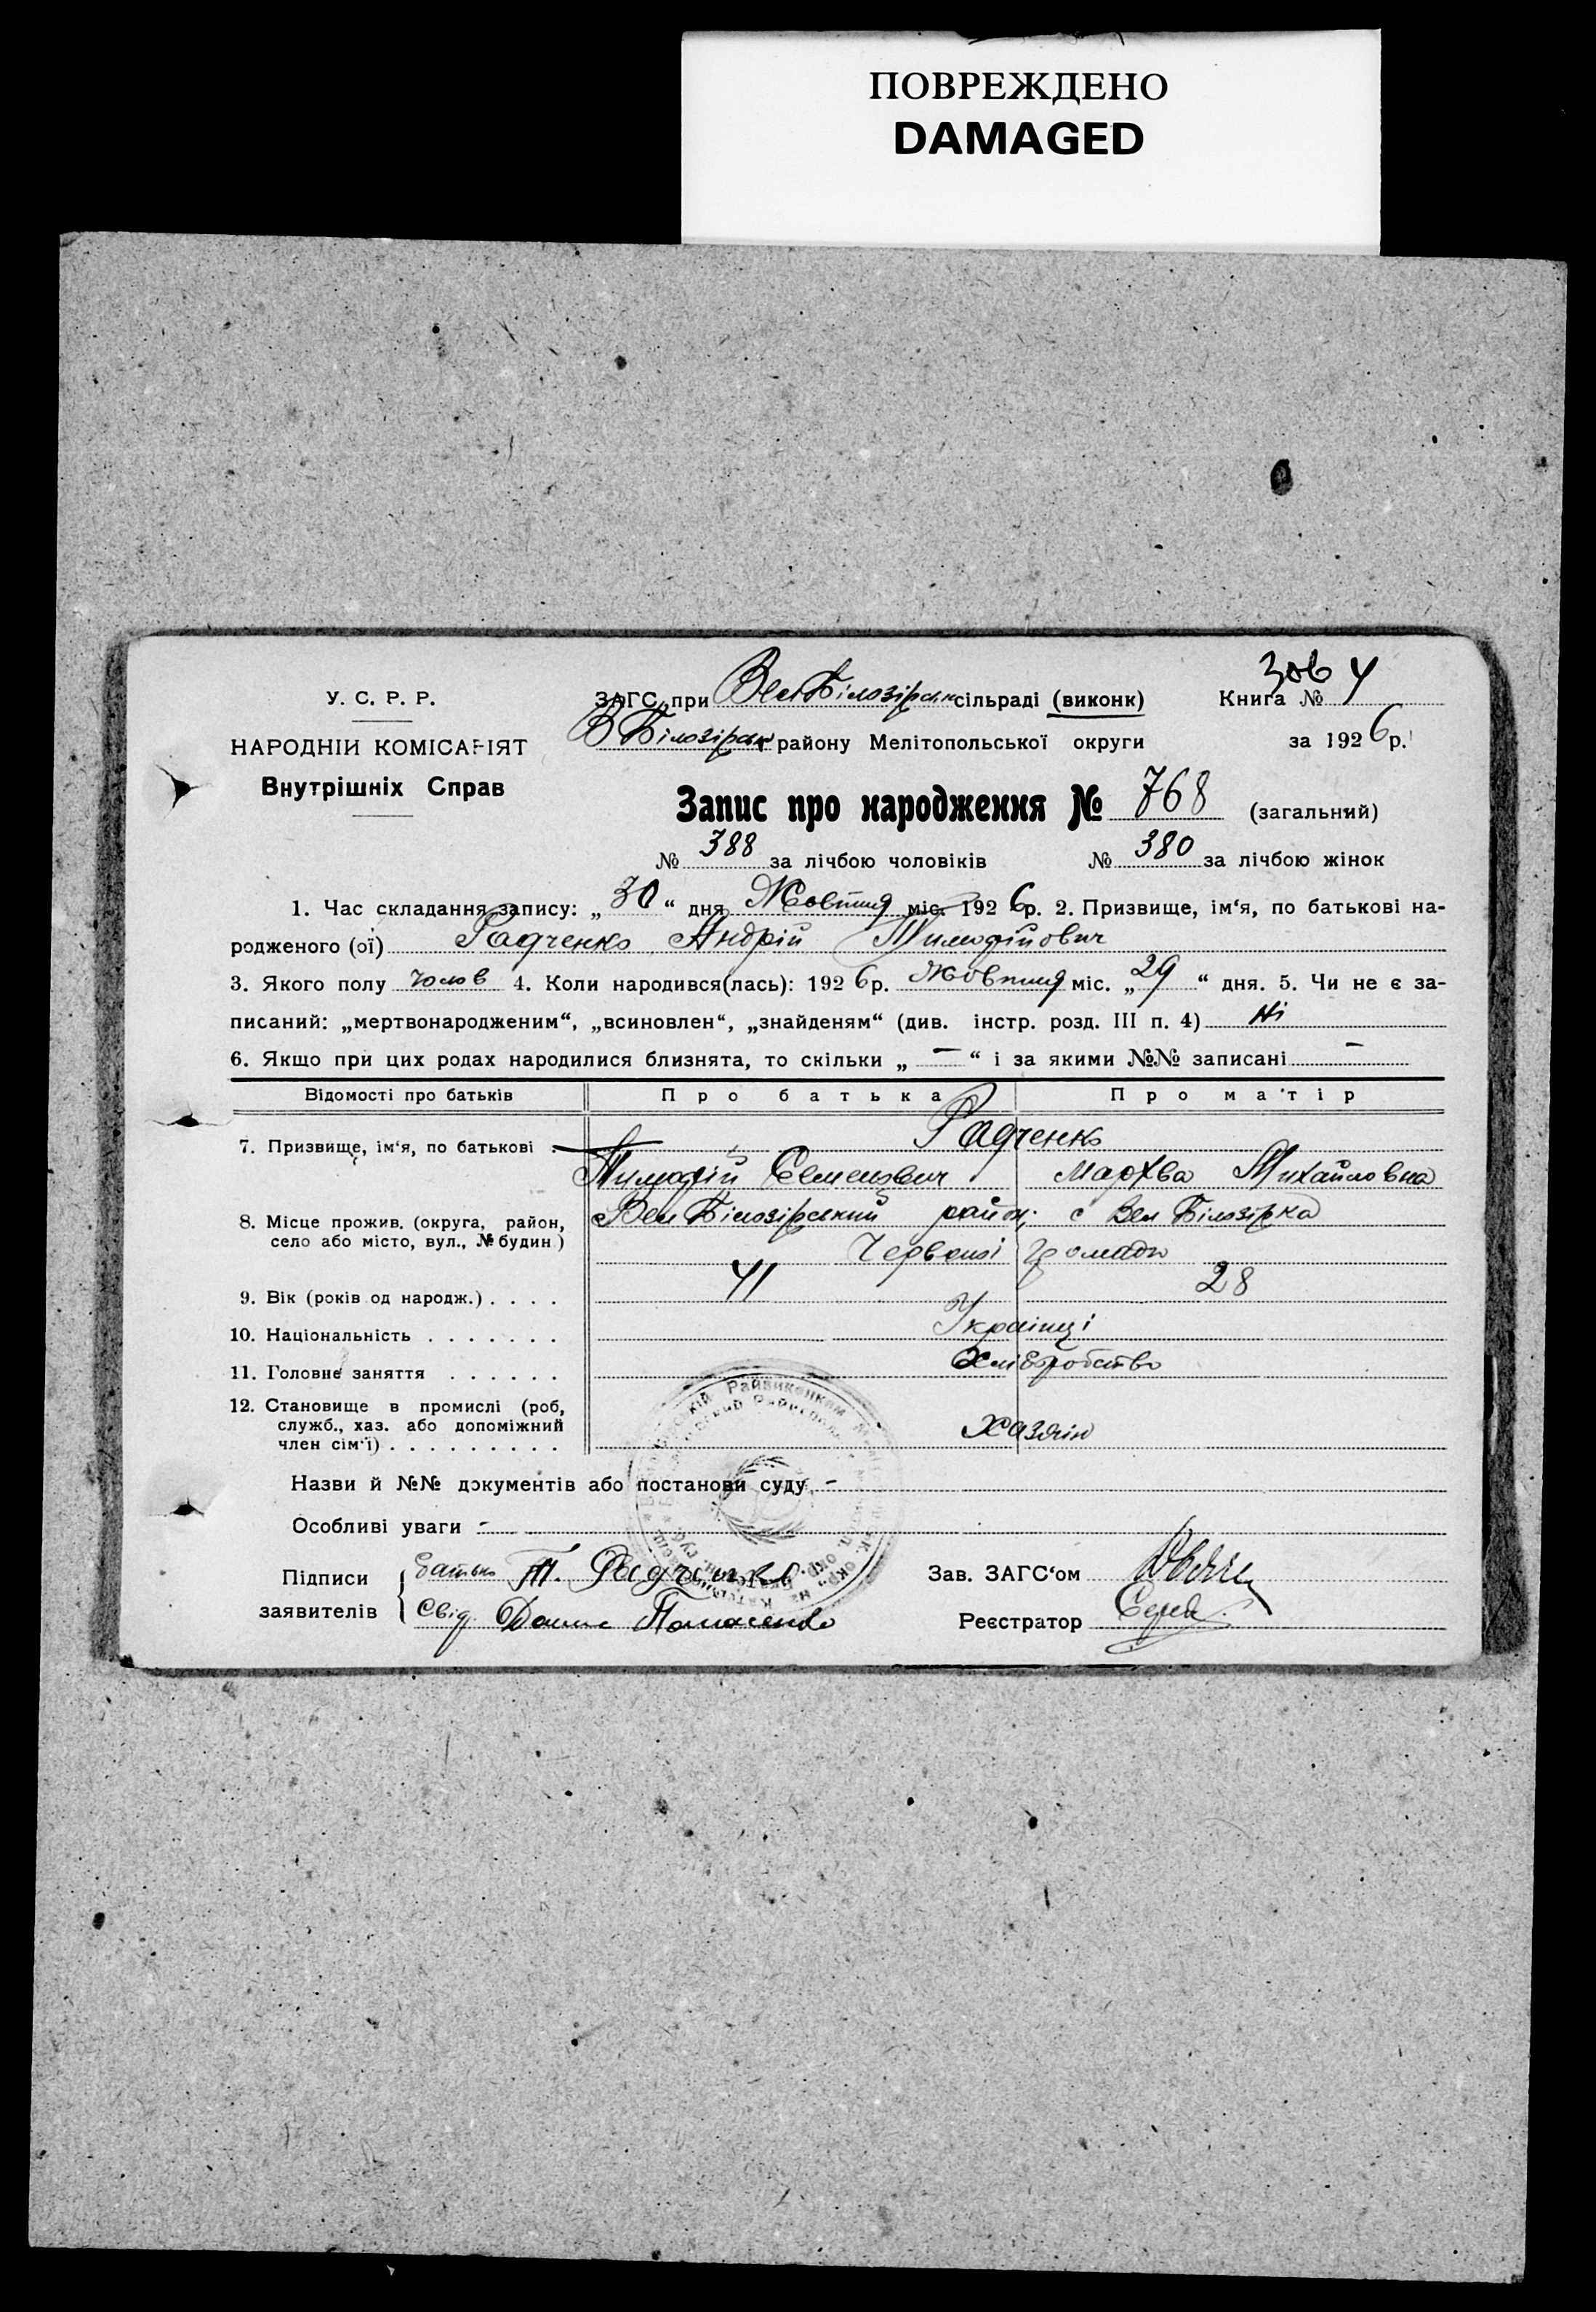 ПОВРЕЖДЕНО
DAMAGED
У. С. Р. Р.
НАРОДНІЙ КОМІСАРІЯТ
Внутрішніх Справ
ЗАГС при ВелБілозірськ сільраді (виконк)
В Білозірськ району Мелітопольської округи
Книга № 4
за 1926 р.
Запис про народження № 768 (загальний)
№ 388 за лічбою чоловіків № 380 за лічбою жінок
1. Час складання запису: „30“ дня Жовтня міс. 1926 р. 2. Призвище, ім‘я, по батькові на-
родженого (ої) Радченко Андрій Тимофійович
3. Якого полу чолов 4. Коли народився(лась): 1926 р. Жовтня міс. „29“ дня. 5. Чи не є за-
писаний: „мертвонародженим“, „всиновлен“, „знайденям“ (див. інстр. розд. III п. 4) Ні
6. Якщо при цих родах народилися близнята, то скільки „ — “ і за якими №№ записані —
Відомості про батьків Про батька Про матір
7. Призвище, ім‘я, по батькові . Радченко
Тимофій Семенович Марфва Михайловна
8. Місце прожив. (округа, район, село або місто, вул., № будин.) Вел Білозірський район; с Вел Білозірка
Червоної громади
9. Вік (років од народж.) . . . . 41 28
10. Національність . . . . . . . Українці
11. Головне заняття . . . . . . Хліборобство
12. Становище в промислі (роб,
служб., хаз. або допоміжний
член сім‘ї) . . . . . . . . . Хазяїн
Назви й №№ документів або постанови суду -
Особливі уваги -
Підписи заявителів
батько Т. Радченко
Свід.
Зав. ЗАГС‘ом
Реєстратор